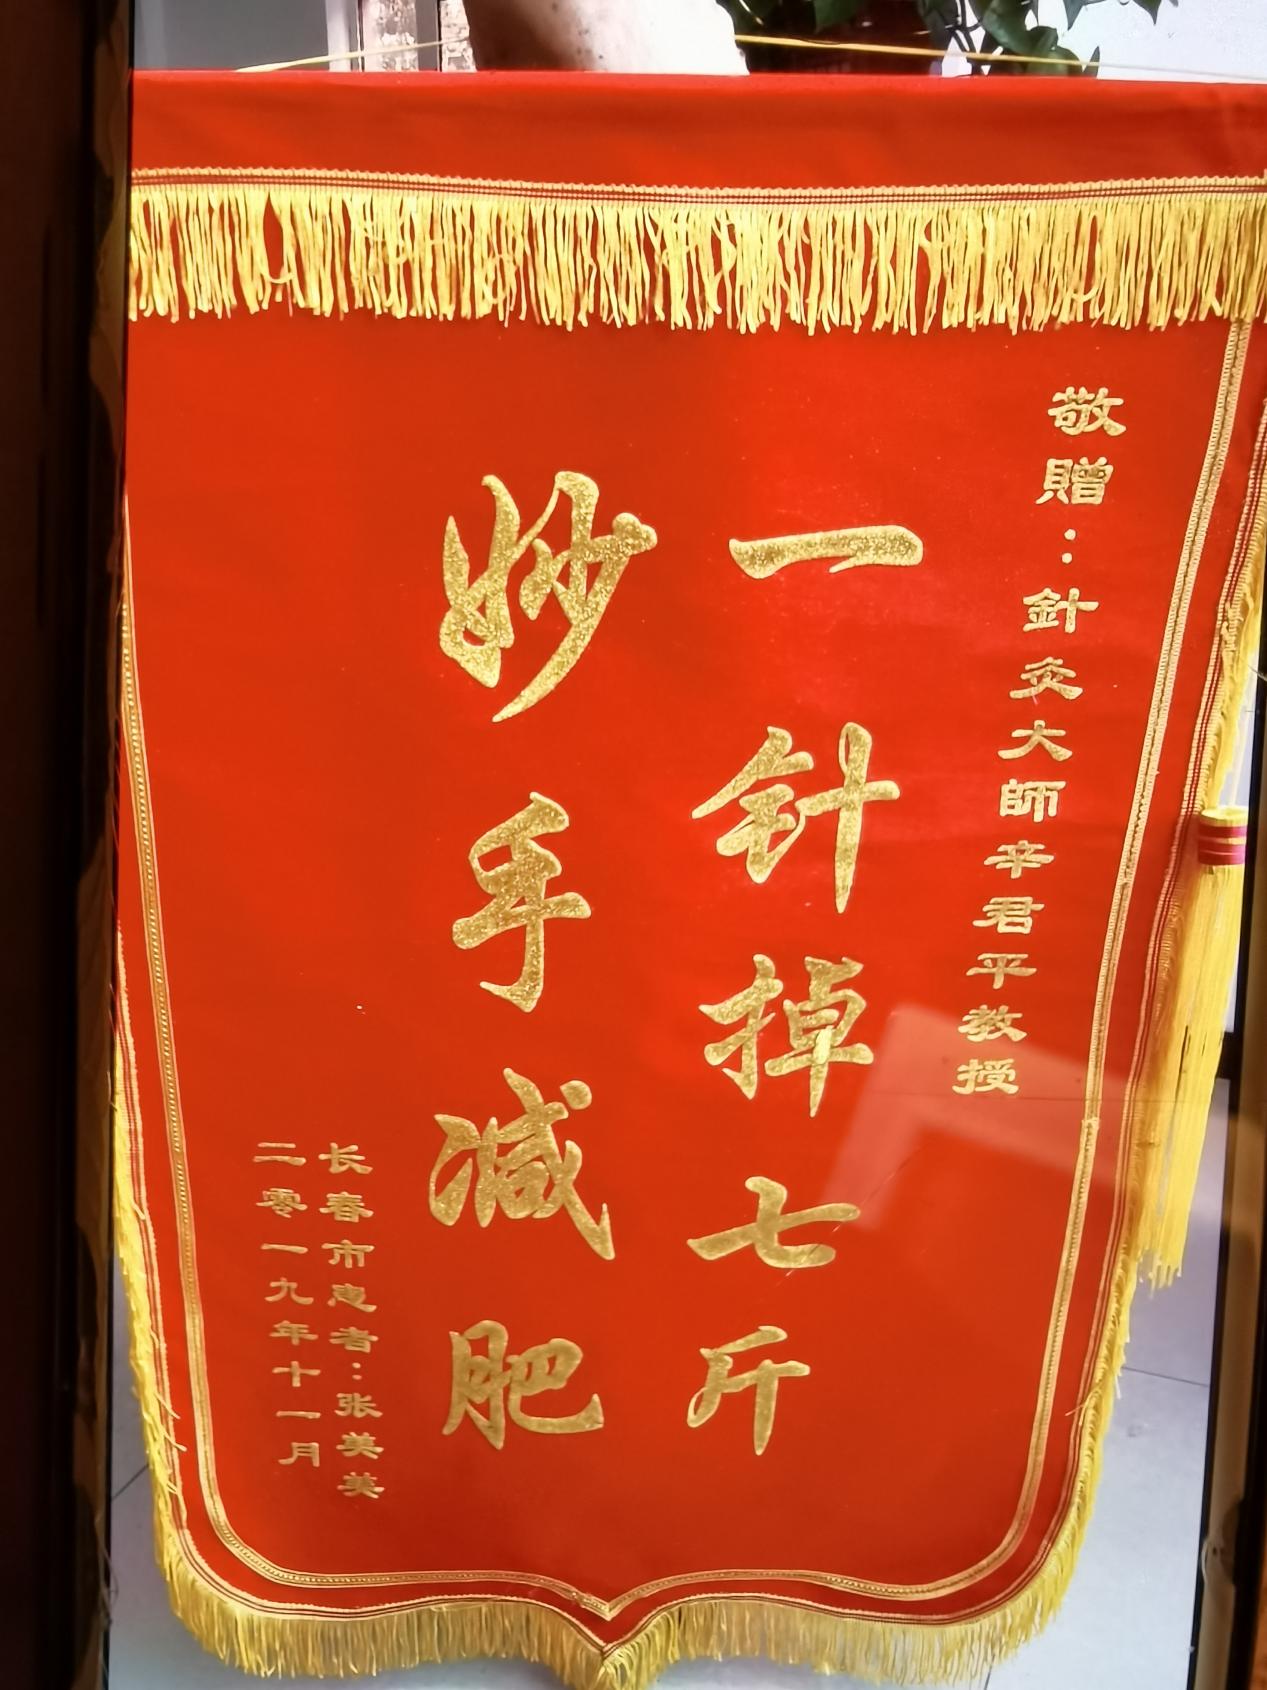 敬贈：針灸大師辛君平教授
一针掉七斤
妙手减肥
长春市患者：张美美
二零一九年十一月